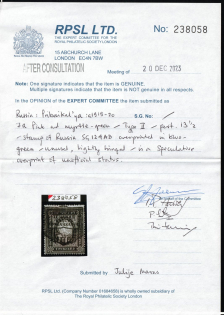 RPSL LTD.
THE EXPERT COMMITTEE FOR THE
ROYAL PHILATELIC SOCIETY LONDON
No 238058
15 ABCHURCH LANE
LONDON EC4N 7BW
AFTER CONSULTATION
Meeting of 20 DEC 2023
Note: One signature indicates that the item is GENUINE.
Multiple signatures indicate that the item is NOT genuine in all respects.
IN THE OPINION OF THE EXPERT COMMITTEE the item submitted as
Russia: c1919-20 S.G. No: /
7R and myrtle-green - Type II - perf. 13½
- stamp of Russia overprinted in blue-
green - unused, lightly hinged - is a speculative
overprint of unofficial status.
238058
Submitted by
RPSL Ltd, (Company Number ) is wholly owned subsidiary of
The Royal Philatelic Society London